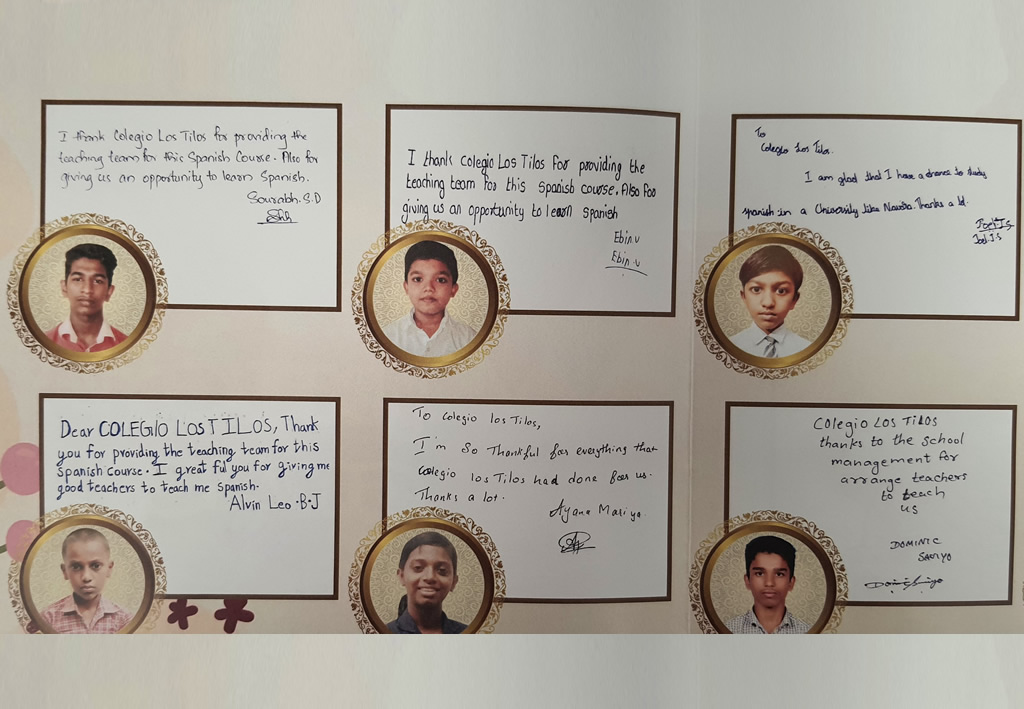 I thank Colegio Los Tilos for providing the
teaching team for this Spanish Course. Also for
giving us an opportunity to learn Spanish.
Sourabh.S.D
I thank colegio Los Tilos for providing the
teaching team for this spanish course. Also for
giving us an opportunity to learn spanish
Ebin.v
Ebin.v
To
Colegio Los Tilos.
I am glad that I have a chance to study
spanish in a University like Thanks a lot.
Joel.J.S
Joel.J.S
Dear COLEGIO LOS TILOS, Thank
you for providing the teaching team for this
spanish course. I great ful you for giving me
good teachers to teach me spanish.
Alvin Leo.B.J
To Colegio los Tilos,
I'm So Thankful for everything that
Colegio los Tilos had done for us.
Thanks a lot.
Ayana Mariya.
COlegio LOS TILOS
thanks to the school
management for
arrange teachers
to teach
us
DOMINIC